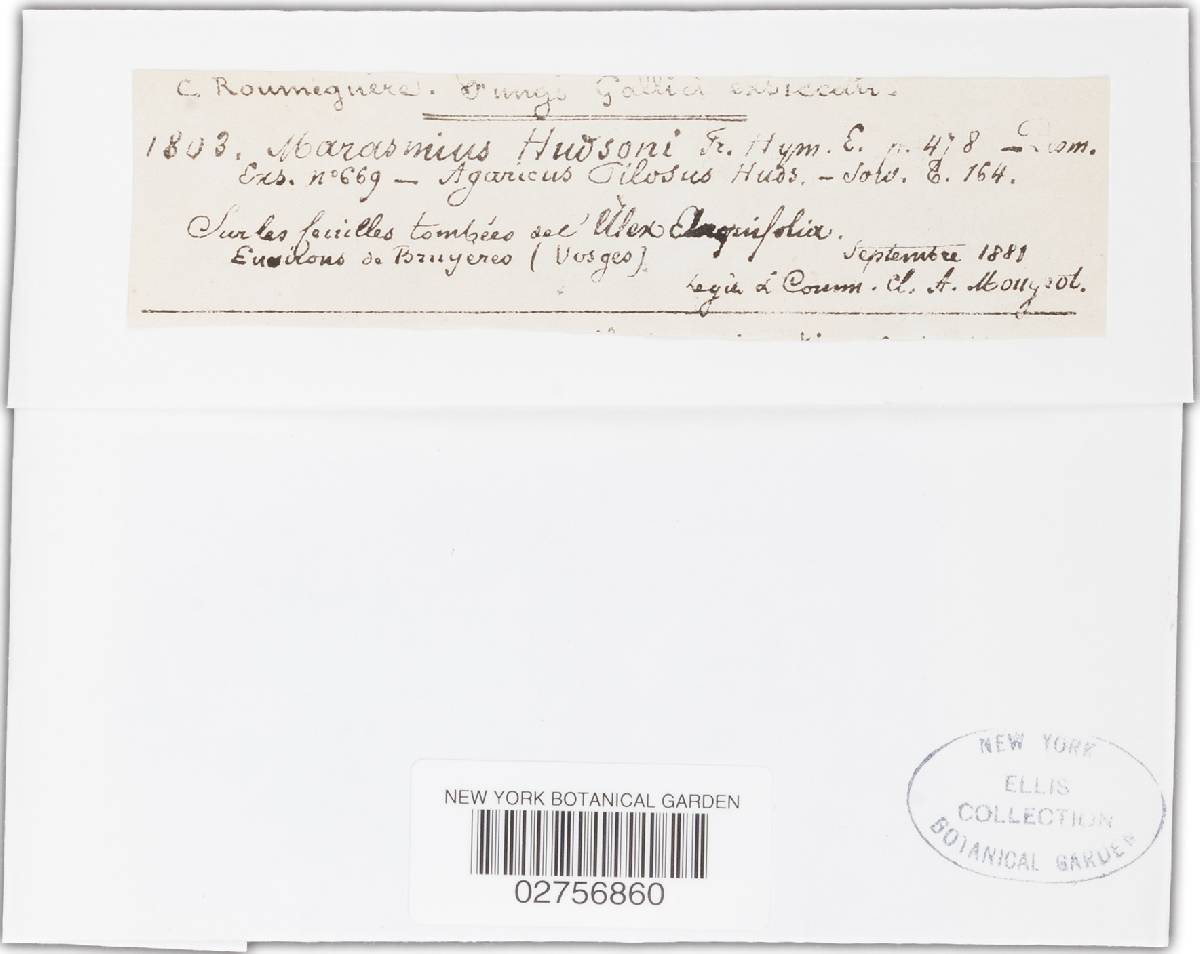 C. Roumeguère. Fungi Gallici exsiccati.
1803. Marasmius Hudsoni Fr. Hym. E. p. 478 — Desm.
Exs. n° 669 — Agaricus Pilosus Huds. — Sow. t. 164.
Sur les feuilles tombées de l' Ilex Aquifolia.
Environs de Bruyeres (Vosges).
Septembre 1881
Legit L Comm. Cl. A. Mougeot.
NEW YORK BOTANICAL GARDEN
02756860
NEW YORK
ELLIS
COLLECTION
BOTANICAL GARDEN